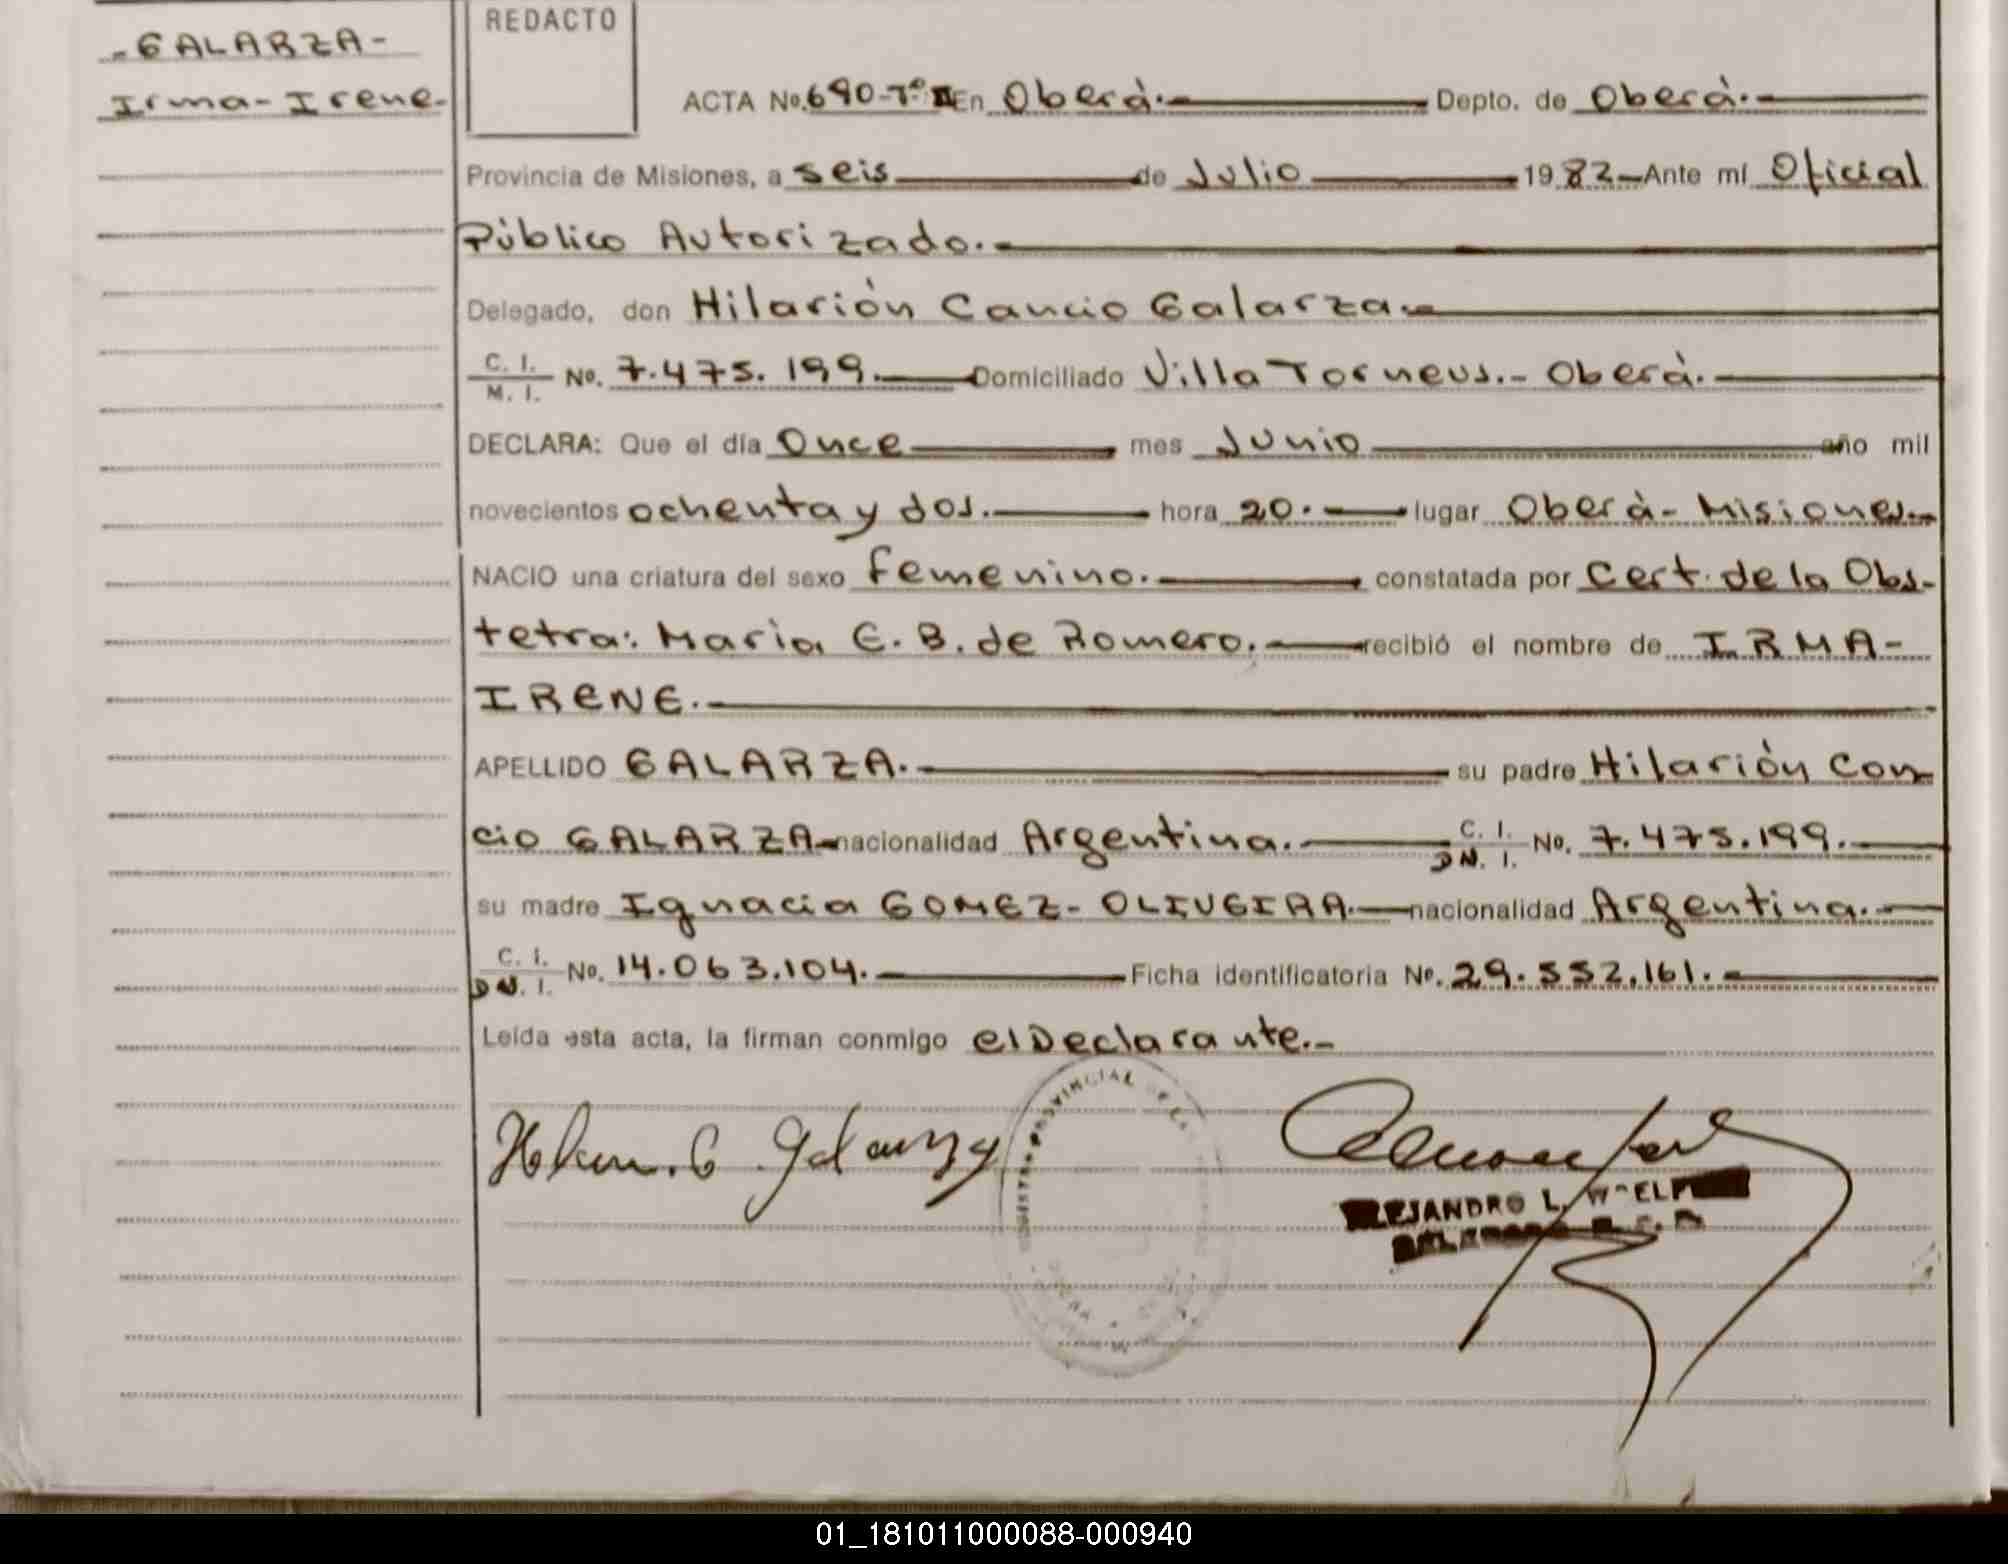 -GALARZA-
Irma-Irene-
REDACTO
ACTA No. 690-Tº II En Oberá.- Depto. de Oberá.-
Provincia de Misiones, a seis de Julio 1982- Ante mí Oficial
Público Autorizado.-
Delegado, don Hilarión Cancio Galarza.-
C. I. / M. I. No. 7.475.199.- Domiciliado Villa Torneus.- Oberá.-
DECLARA: Que el día Once mes Junio año mil
novecientos ochenta y dos.- hora 20.- lugar Oberá- Misiones.-
NACIO una criatura del sexo femenino.- constatada por Cert. de la Obs-
tetra: Maria E. B. de Romero.- recibió el nombre de IRMA-
IRENE.-
APELLIDO GALARZA.- su padre Hilarión Can
cio GALARZA- nacionalidad Argentina.- C. I. / DN. I. No. 7.475.199.-
su madre Ignacia GOMEZ- OLIVEIRA.- nacionalidad Argentina.-
C. I. / DN. I. No. 14.063.104.- Ficha identificatoria No. 29.552.161.-
Leída esta acta, la firman conmigo el Declarante.-
PROVINCIAL DE
Galarza
ALEJANDRO L.
01_181011000088-000940